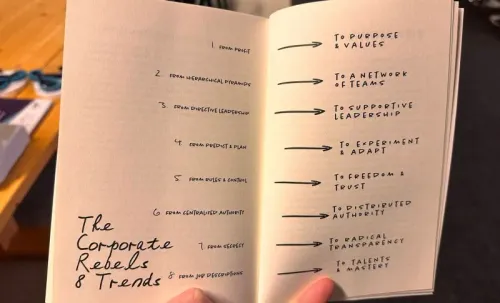 1 FROM PROFIT
TO PURPOSE
& VALUES
2 FROM HIERARCHICAL PYRAMIDS
TO A NETWORK
OF TEAMS
3 FROM DIRECTIVE LEADERSHIP
TO SUPPORTIVE
LEADERSHIP
4 FROM PREDICT & PLAN
TO EXPERIMENT
& ADAPT
5 FROM RULES & CONTROL
TO FREEDOM &
TRUST
6 FROM CENTRALIZED AUTHORITY
TO DISTRIBUTED
AUTHORITY
7 FROM SECRECY
TO RADICAL
TRANSPARENCY
8 FROM JOB DESCRIPTIONS
TO TALENTS
& MASTERY
The
Corporate
Rebels
8 Trends